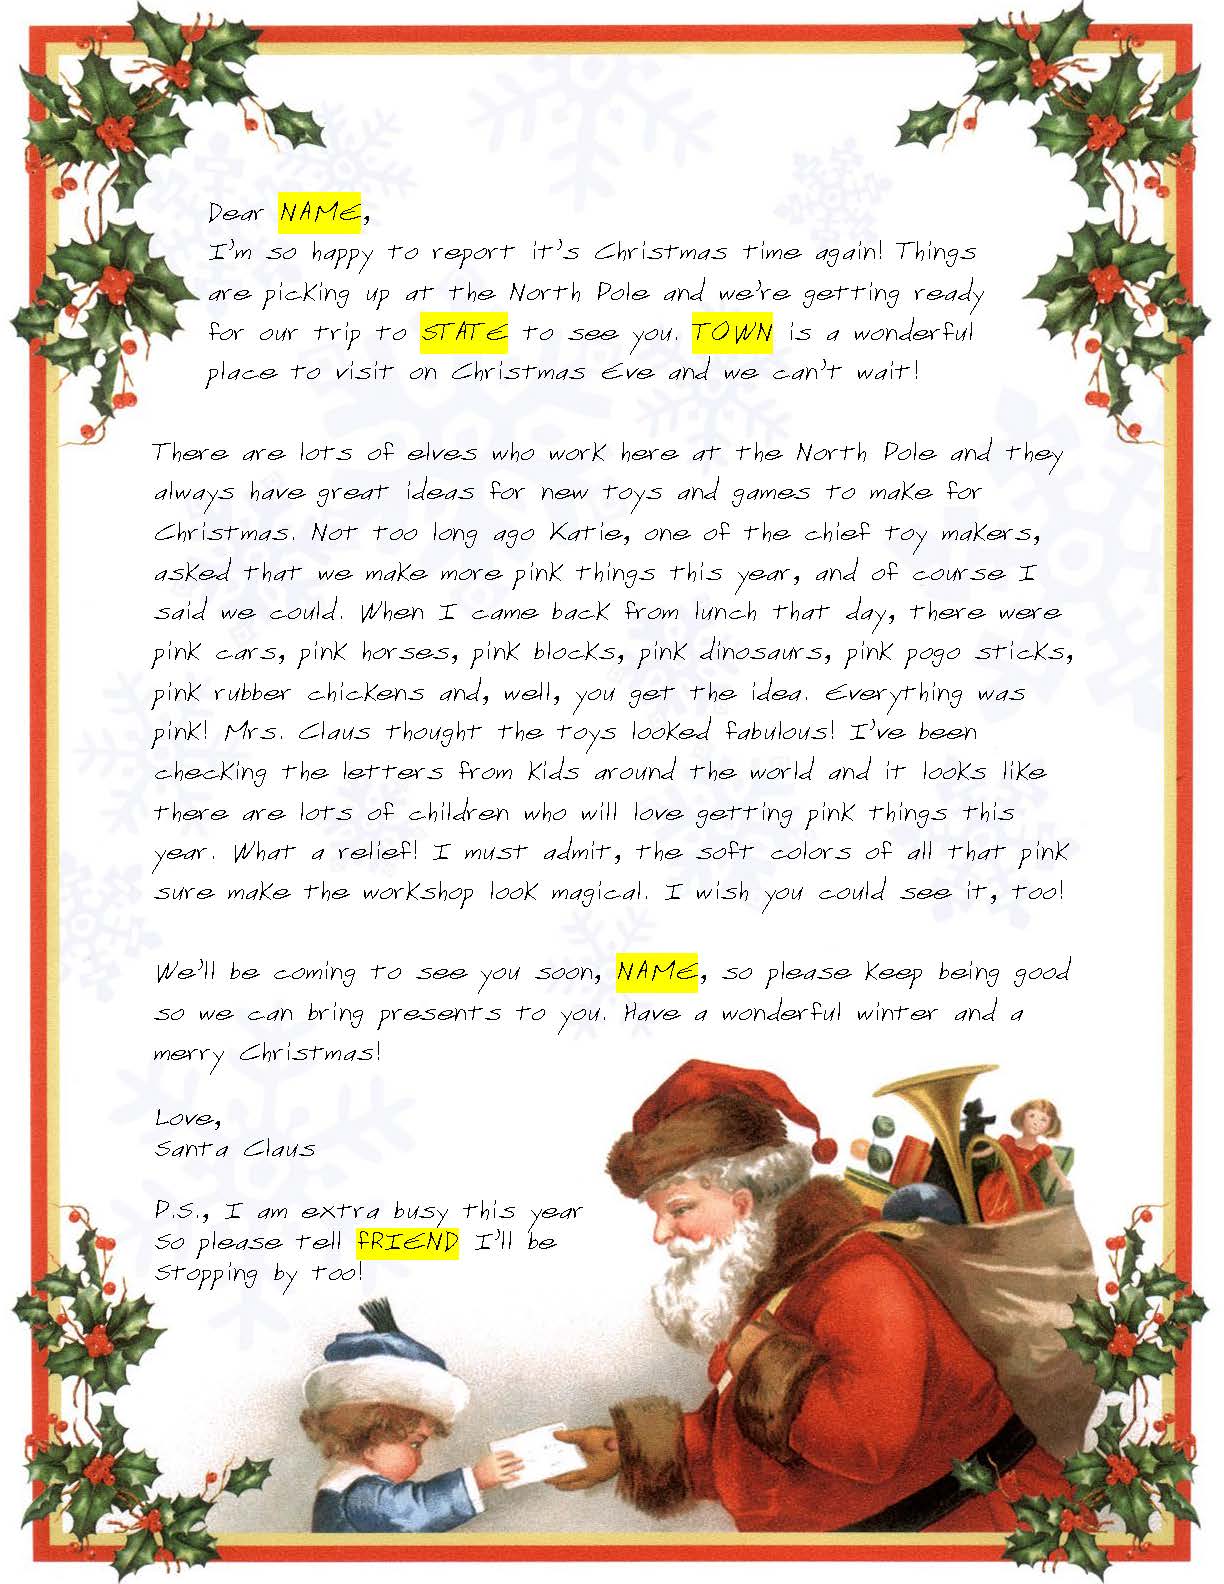 Dear NAME,
I'm so happy to report it's Christmas time again! Things
are picking up at the North Pole and we're getting ready
for our trip to STATE to see you. TOWN is a wonderful
place to visit on Christmas Eve and we can't wait!
There are lots of elves who work here at the North Pole and they
always have great ideas for new toys and games to make for
Christmas. Not too long ago Katie, one of the chief toy makers,
asked that we make more pink things this year, and of course I
said we could. When I came back from lunch that day, there were
pink cars, pink horses, pink blocks, pink dinosaurs, pink pogo sticks,
pink rubber chickens and, well, you get the idea. Everything was
pink! Mrs. Claus thought the toys looked fabulous! I've been
checking the letters from kids around the world and it looks like
there are lots of children who will love getting pink things this
year. What a relief! I must admit, the soft colors of all that pink
sure make the workshop look magical. I wish you could see it, too!
We'll be coming to see you soon, NAME, so please keep being good
so we can bring presents to you. Have a wonderful winter and a
merry Christmas!
Love,
Santa Claus
P.S., I am extra busy this year
So please tell fRIEND I'll be
Stopping by too!